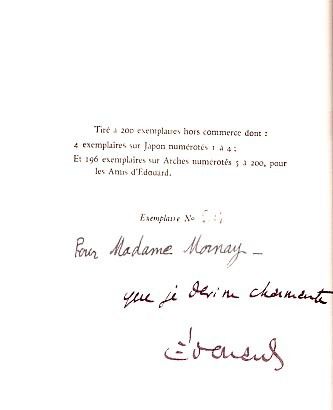 Tiré à 200 exemplaires hors commerce dont :
4 exemplaires sur Japon numérotés 1 à 4 ;
Et 196 exemplaires sur Arches numérotés 5 à 200, pour
les Amis d'Édouard.
Exemplaire No
Pour Madame Mornay —
que je devine charmante
Édouard